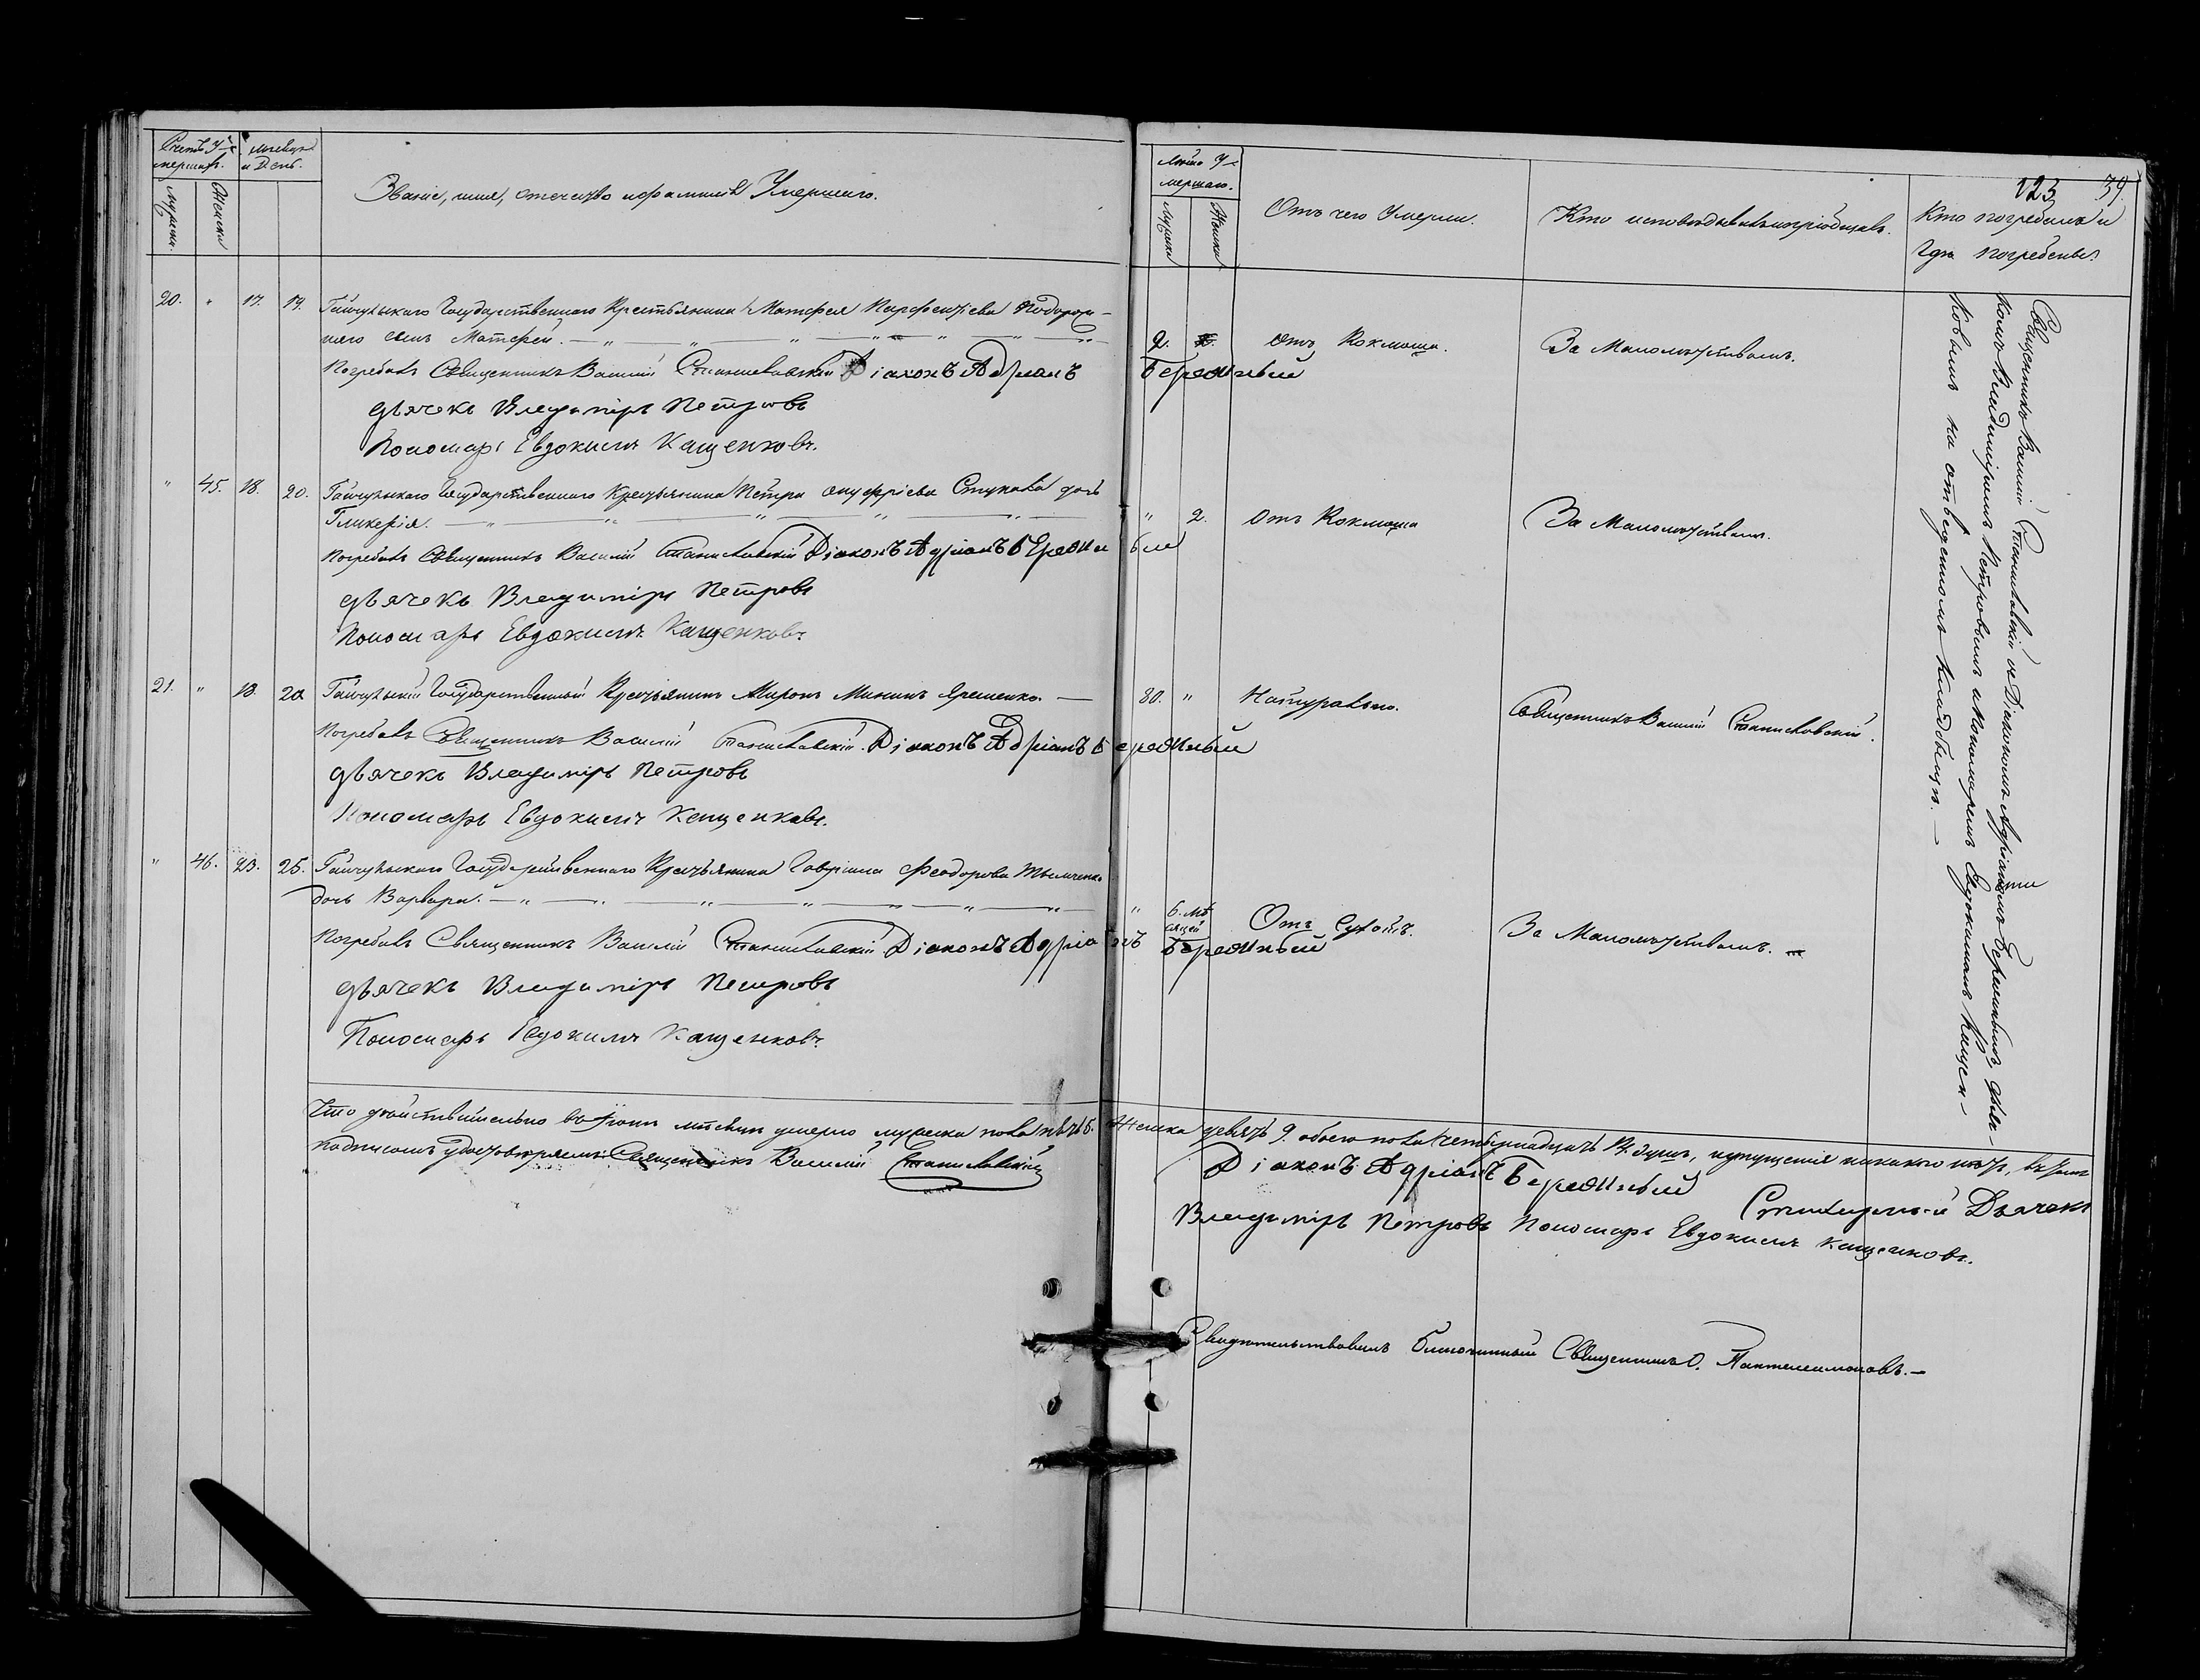 Счетъ У-
мершихъ.
Мѣсяцъ
и День.
Званіе, имя, отечество и фамилія Умершаго.
мужеска.
Женска
Лѣта У-
мершаго.
Мужеска
Женска
Отъ чего Умерли.
Кто исповѣдывалъ и пріобщалъ.
123 39.
Кто погребалъ и
Гдѣ погребены.
20. " 17. 19. Гайчульскаго Государственнаго Крестьянина Матфея Парфентіева
сынъ Матфей. 2. Отъ Коклюша. За Малолѣтствомъ.
Погребалъ Священникъ Василій Станиславскій Діаконъ Адріанъ Бережный
дьячекъ Владиміръ Петровъ
Пономарь Евдокимъ Кащенковъ.
" 45. 18. 20. Гайчульскаго Государственнаго Крестьянина Петра Онуфріева Стукала дочь
Гликерія. " 2. Отъ Коклюша За Малолѣтствомъ.
Погребалъ Священникъ Василій Станиславскій Діаконъ Адріанъ Бережный
дьячекъ Владиміръ Петровъ
Пономарь Евдокимъ Кащенковъ.
21. " 18. 20. Гайчульскій Государственный Крестьянинъ Миронъ Мининъ Яременко. 80. " Натурально. Священникъ Василій Станиславскій.
Погребалъ Священникъ Василій Станиславскій. Діаконъ Адріанъ Бережный
дьячекъ Владиміръ Петровъ
Пономарь Евдокимъ Кащенковъ.
" 46. 23. 25. Гайчульскаго Государственнаго Крестьянина Гавріила Феодорова
дочь Варвара. " 6. мѣсяцей Отъ Сухотъ. За Малолѣтствомъ.
Погребалъ Священникъ Василій Станиславскій Діаконъ Адріанъ Бережный
дьячекъ Владиміръ Петровъ
Пономарь Евдокимъ Кащенковъ.
Священникъ Василій Станиславскій съ Діакономъ Адріаномъ Бережнымъ, дьяч-
комъ Владиміромъ Петровымъ и Пономаремъ Евдокимомъ Кащен-
ковымъ на отведенномъ кладбищѣ.
Что дѣйствительно въ Іюнѣ мѣсяцѣ умерло мужеска пола пять 5. Женска девять 9. обоего пола четырнадцать 14. душъ, и пущенія никакого нѣтъ, въ томъ
подписомъ удостовѣряемъ: Священникъ Василій Станиславскій
Діаконъ Адріанъ Бережный Дьячекъ
Владиміръ Петровъ Пономарь Евдокимъ Кащенковъ.
Свидѣтельствовалъ Благочинный Священникъ О. Пантелеимоновъ.